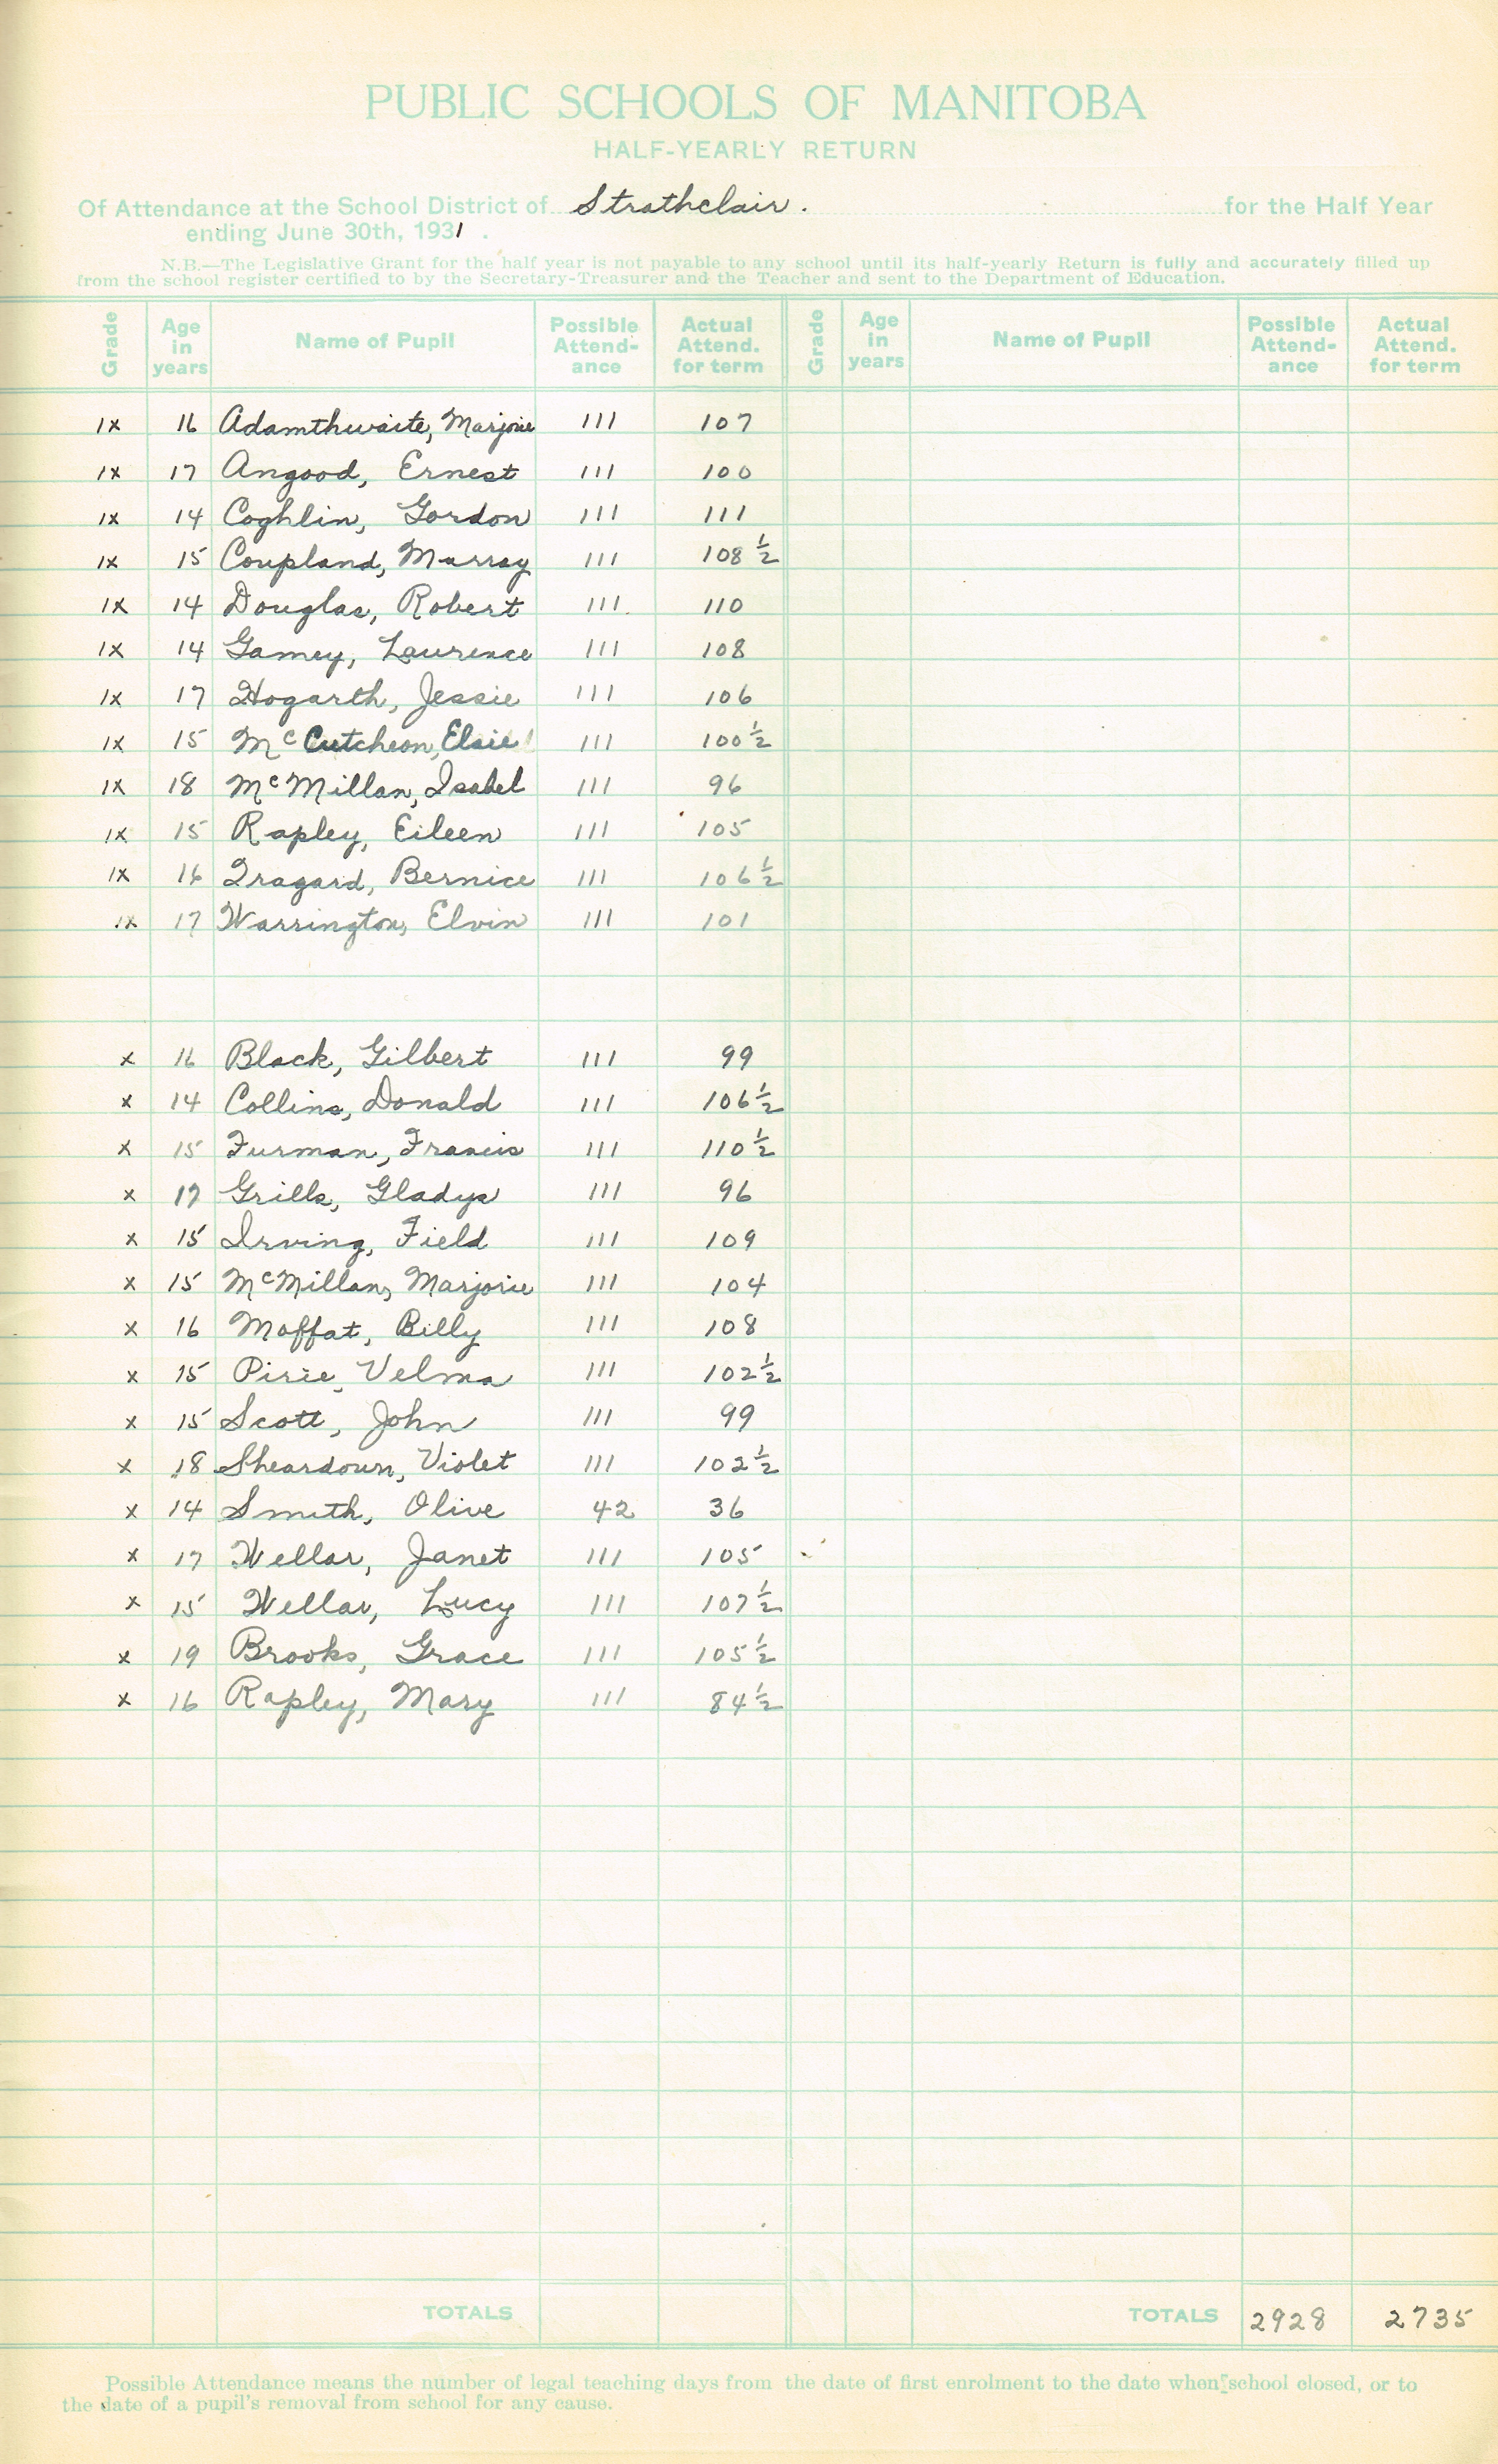 PUBLIC SCHOOLS OF MANITOBA
HALF-YEARLY RETURN
Of Attendance at the School District of Strathclair. for the Half Year
ending June 30th, 1931.
N.B.—The Legislative Grant for the half year is not payable to any school until its half-yearly Return is fully and accurately filled up
from the school register certified to by the Secretary-Treasurer and the Teacher and sent to the Department of Education.
Grade Age in years Name of Pupil Possible Attend-ance Actual Attend. for term Grade Age in years Name of Pupil Possible Attend-ance Actual Attend. for term
IX 16 Adamthwaite, Marjorie 111 107
IX 17 Angood, Ernest 111 100
IX 14 Coghlin, Gordon 111 111
IX 15 Coupland, Murray 111 108 1/2
IX 14 Douglas, Robert 111 110
IX 14 Gamey, Laurence 111 108
IX 17 Hogarth, Jessie 111 106
IX 15 McCutcheon, Elsie 111 100 1/2
IX 18 McMillan, Isabel 111 96
IX 15 Rapley, Eileen 111 105
IX 16 Tragard, Bernice 111 106 1/2
IX 17 Warrington, Elvin 111 101
X 16 Black, Gilbert 111 99
X 14 Collins, Donald 111 106 1/2
X 15 Furman, Francis 111 110 1/2
X 17 Grills, Gladys 111 96
X 15 Irving, Field 111 109
X 15 McMillan, Marjorie 111 104
X 16 Moffat, Billy 111 108
X 15 Pirie, Velma 111 102 1/2
X 15 Scott, John 111 99
X 18 Sheardown, Violet 111 102 1/2
X 14 Smith, Olive 42 36
X 17 Wellar, Janet 111 105
X 15 Wellar, Lucy 111 107 1/2
X 19 Brooks, Grace 111 105 1/2
X 16 Rapley, Mary 111 84 1/2
TOTALS TOTALS 2928 2735
Possible Attendance means the number of legal teaching days from the date of first enrolment to the date when school closed, or to
the date of a pupil's removal from school for any cause.